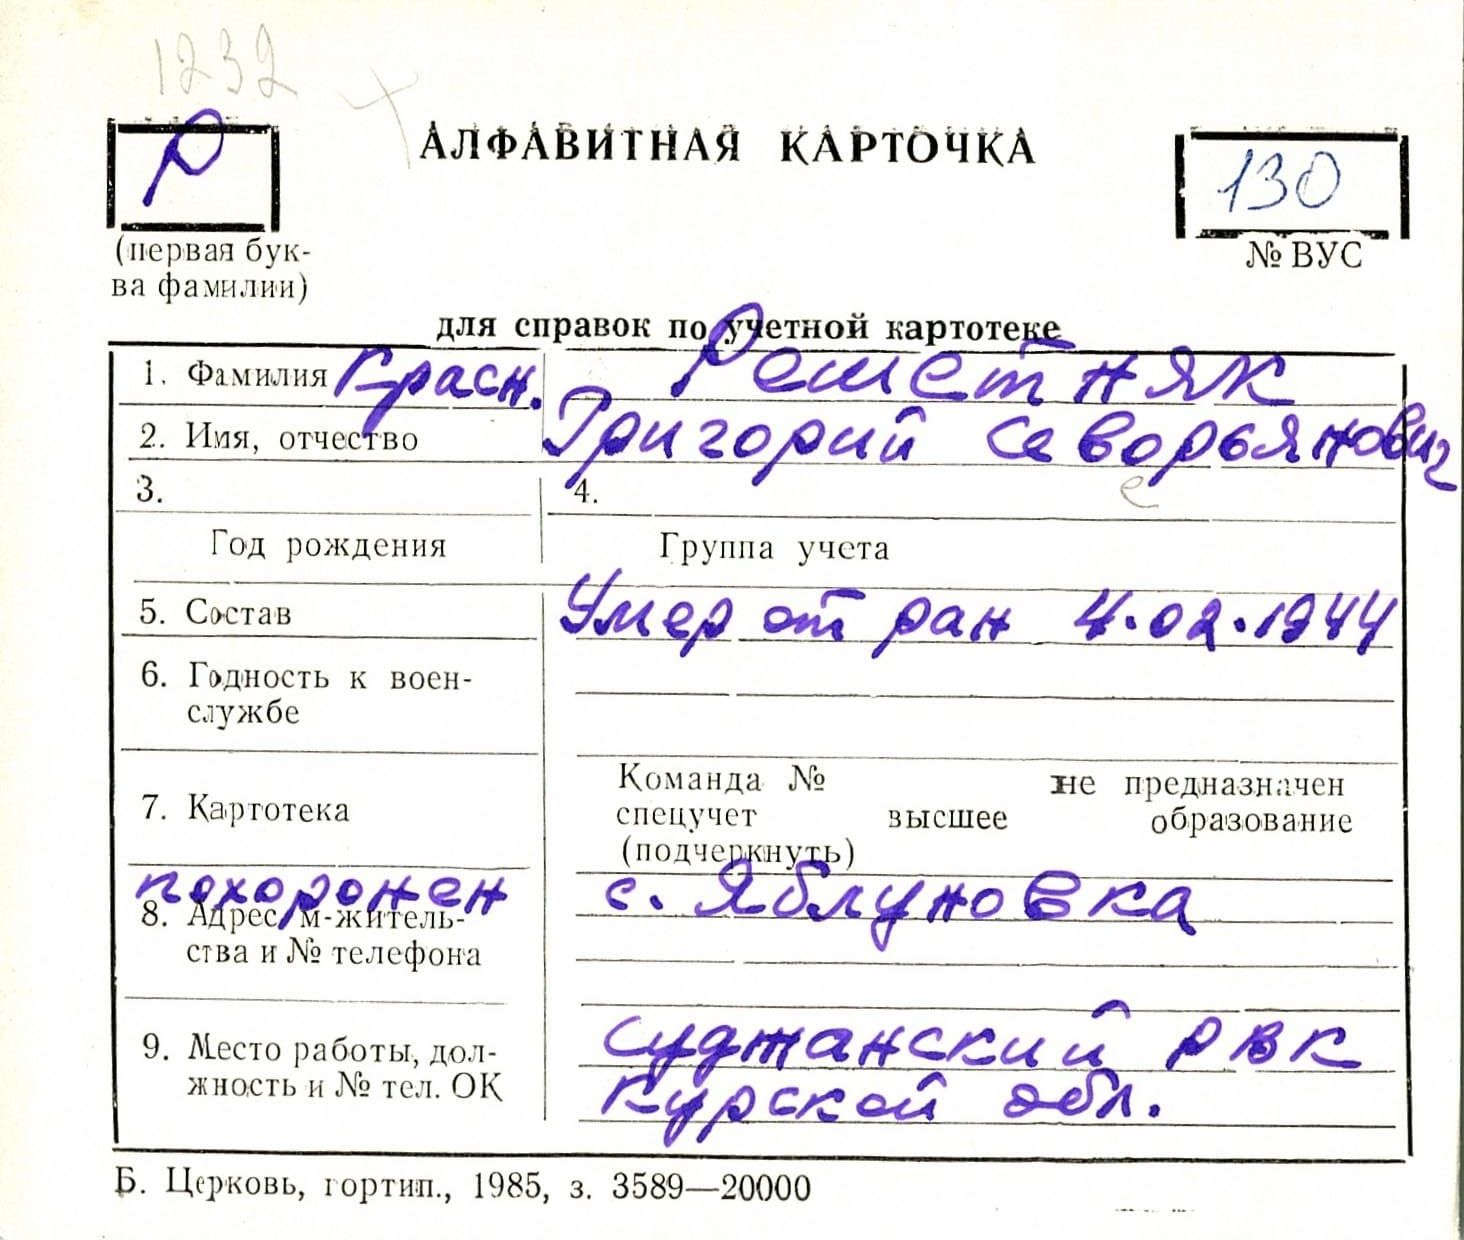 1232
Р
АЛФАВИТНАЯ КАРТОЧКА
130
(первая бук-
ва фамилии)
№ ВУС
для справок по учетной картотеке
1. Фамилия Красн. Решетняк
2. Имя, отчество Григорий Северьянович
3.
4.
Год рождения
Группа учета
5. Состав Умер от ран 4.02.1944
6. Годность к воен-
службе
7. Картотека
Команда № не предназначен
спецучет высшее образование
(подчеркнуть)
похоронен с. Яблуновка
8. Адрес м-житель-
ства и № телефона
9. Место работы, дол-
жность и № тел. ОК
Суджанский РВК
Курской обл.
Б. Церковь, гортип., 1985, з. 3589—20000